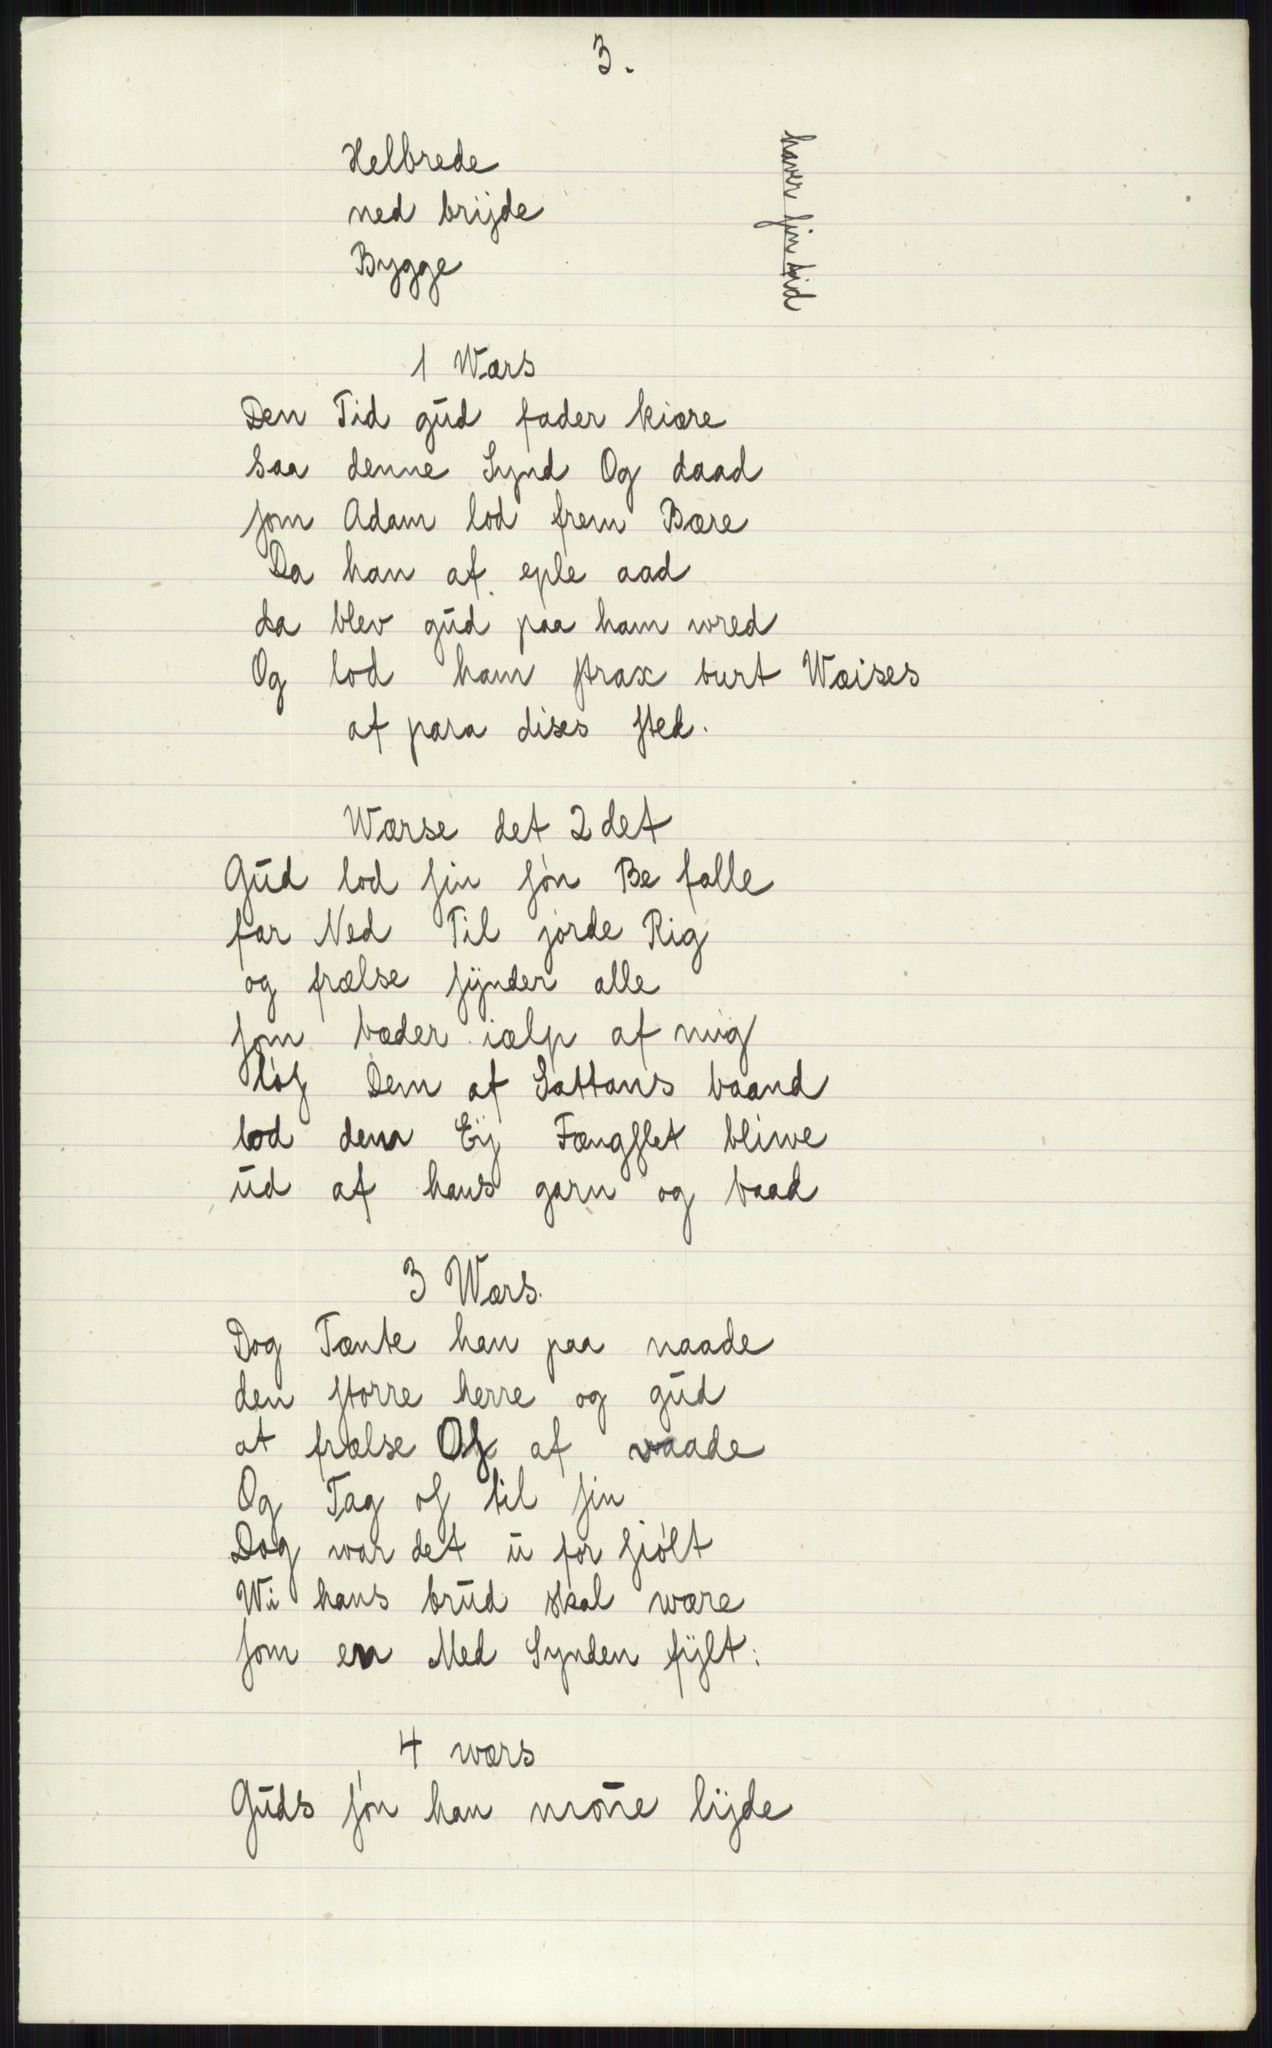 3.
Helbrede
ned brijde
Bygge
haver sin tid
1 Wærs
Den Tid gūd fader kiære
saa denne Synd Og daad
som Adam lod frem Bære
Da han af eple aad
da blev gūd paa ham wred
Og lod ham strax burt Wæises
af para dises sted.
Wærse det 2 det
Gūd lod sin són Be falle
far Ned Til jorde Rig
og frælse sÿnder alle
som bæder iælp af mig
Dem af Sattans baand
lod dem Eÿ Fængslet bliwe
ūd af hans garn og baad
3 Wærs.
Dog Tænte han paa naade
den storre herre og gūd
at frælse Os af waade
Og Tag os til sin
Dog war det ū for siólt
Wi hans brūd skal wære
som en Med Synden fÿlt:
4 wærs
Gūds són han mone lijde